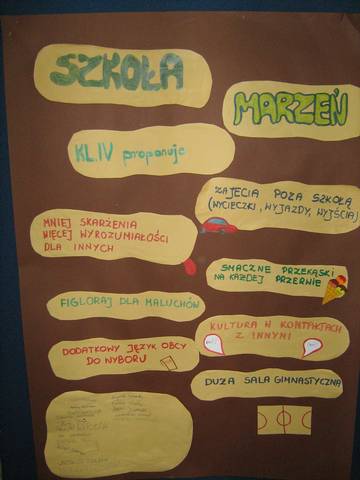 SZKOŁA
MARZEŃ
KL.IV proponuje
ZAJĘCIA POZA SZKOŁĄ
(WYCIECZKI, WYJAZDY, WYJŚCIA)
MNIEJ SKARŻENIA
WIĘCEJ WYROZUMIAŁOŚCI
DLA INNYCH
SMACZNE PRZEKĄSKI
NA KAŻDEJ PRZERWIE
FIGLORAJ DLA MALUCHÓW
KULTURA W KONTAKTACH
Z INNYMI
DODATKOWY JĘZYK OBCY
DO WYBORU
DUŻA SALA GIMNASTYCZNA